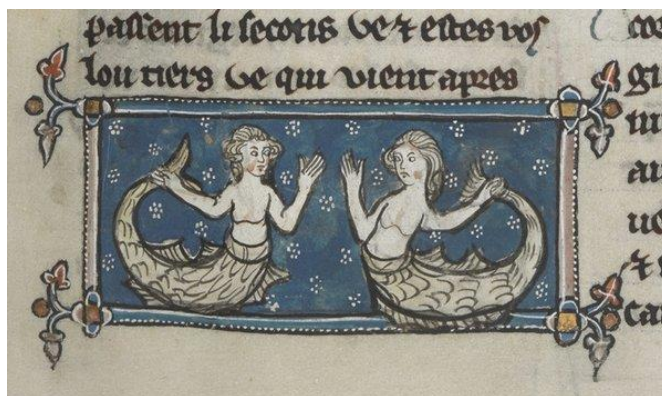 passent li secons ve ⁊ estes vos
lou tiers ve qui vient apres